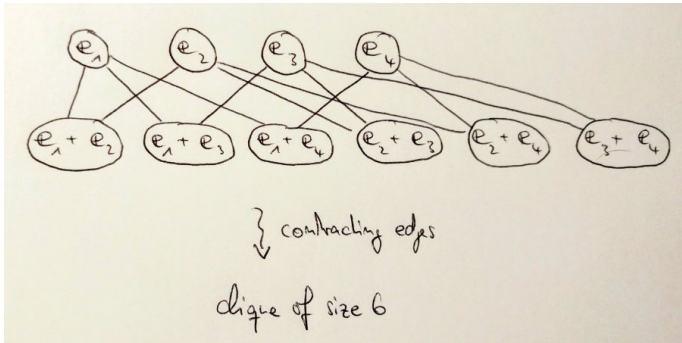 e₁ e₂ e₃ e₄
e₁ + e₂ e₁ + e₃ e₁ + e₄ e₂ + e₃ e₂ + e₄ e₃ + e₄
contracting edges
clique of size 6